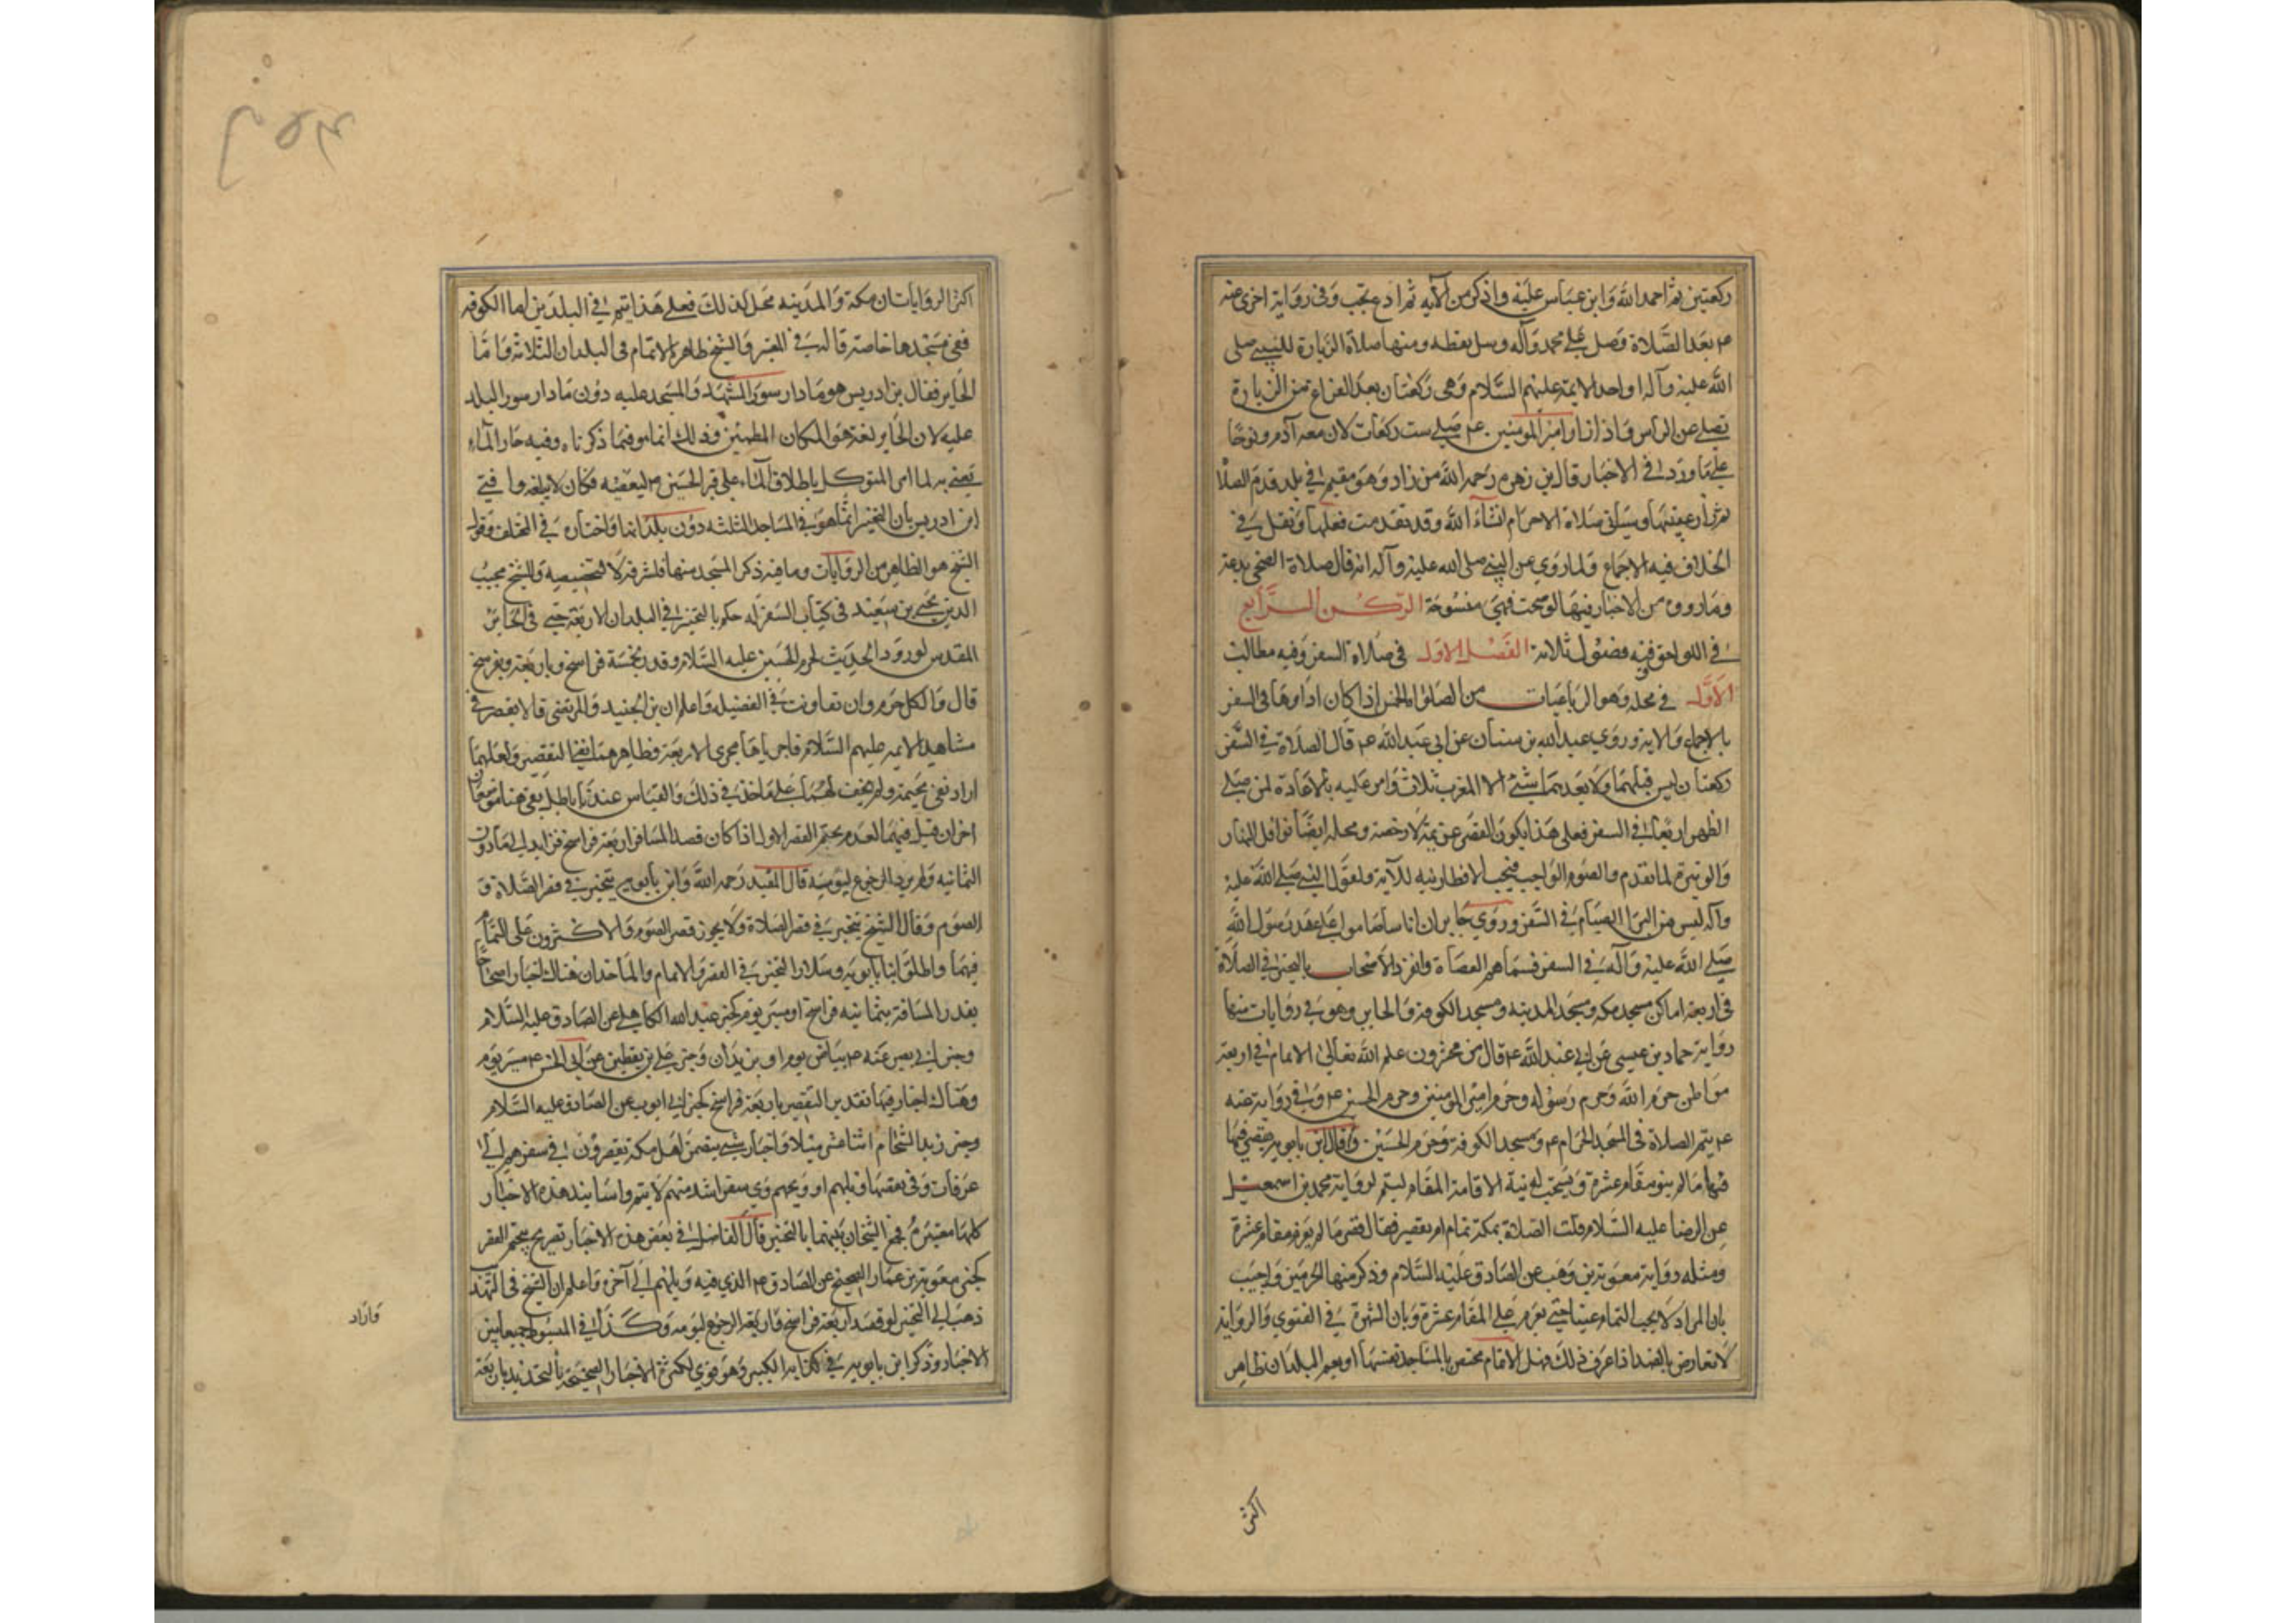 ركعتين ثم احمد الله وابن عباس عليه واذكر من الآية ثم ادع بحب وفى رواية اخرى عنه
ع بعد الصلاة وصل على محمد وآله وسل بعطه ومنها صلاة الزيارة للنبي صلى
الله عليه وآله او احد الايمة عليهم السلام وهى ركعتان بعد الفراغ من الزيارة
تصلى عن الراس واذا زار امير المومنين ع صلى ست ركعات لان معه آدم ونوحا
على ما ورد في الاخبار قال ابن زهره رحمه الله من زار وهو مقيم في بلد قدم الصلاة
ثم زار عقيبها وسياتى صلاة الاحرام انشاء الله وقد تقدمت فعلها ونقل في
الخلاف فيه الاجماع ولما روي عن النبي صلى الله عليه وآله انه قال صلاة الضحى بدعة
وما رووه من الاخبار فيها لو صحت فهى منسوخة الركن الرابع
في اللواحق وفيه فصول ثلاثة الفصل الاول فى صلاة السفر وفيه مطالب
الاول في محله وهو الرباعيات من الصلوات الخمس اذا كان اداوها فى السفر
بالاجماع والاية وروي عبد الله بن سنان عن ابى عبد الله ع قال الصلاة في السفر
ركعتان ليس قبلهما ولا بعدهما شئ الا المغرب ثلاث وامر عليه بالاعادة لمن صلى
الظهر اربعا في السفر فعلى هذا يكون القصر عزيمة لا رخصة ومحله ايضا نوافل النهار
والوتيرة لما تقدم والصوم الواجب فيجب الافطار فيه للآية ولقول النبي صلى الله عليه
وآله ليس من البر الصيام في السفر وروي جابر ان اناسا صاموا على عهد رسول الله
صلى الله عليه وآله في السفر فسماهم العصاة وانفرد الاصحاب بالتخيير في الصلاة
فى اربعة اماكن مسجد مكه ومسجد المدينه ومسجد الكوفة والحاير وهو في روايات منها
رواية حماد بن عيسى عن ابي عبد الله ع قال من مخزون علم الله تعالى الاتمام في اربعة
مواطن حرم الله وحرم رسوله وحرم امير المومنين وحرم الحسين ع وفى رواية عنه
ع يتم الصلاة فى المسجد الحرام ع ومسجد الكوفة وحرم الحسين وقال ابن بابويه يقصر فيها
فيها ما لم ينو مقام عشرة ويستحب له نية الاقامة المقام ليتم لرواية محمد بن اسمعيل
عن الرضا عليه السلام قلت الصلاة بمكة تمام ام تقصير فقال قصر ما لم يعزم مقام عشرة
ومثله رواية معوية بن وهب عن الصادق عليه السلام وذكر منها الحرمين واجيب
بان المراد لا يجب التمام عينا حتى يعزم على المقام عشرة وبان الشهرة في الفتوي والرواية
لا تعارض بالضد اذا عرف ذلك فهل الاتمام مختص بالمساجد نفسها او يعم البلدان ظاهر
اكثر
اكثر الروايات ان مكة والمدينه محل لذلك فعلى هذا يتم في البلدين اما الكوفه
ففى مسجدها خاصة قاله في المعتبر والشيخ ظاهره الاتمام فى البلدان الثلاثة واما
الحاير فقال بن ادريس هو ما دار سور المشهد والمسجد عليه دون ما دار سور البلد
عليه لان الحاير لغة هو المكان المطمئن وذلك انما هو فيما ذكرناه وفيه حار الماء
يعنى به لما امر المتوكل باطلاق الماء على قبر الحسين ع ليعفيه فكان لا يبلغه وافتى
ابن ادريس بان التخيير انما هو في المساجد الثلثه دون بلدانها واختاره في المختلف وقول
الشيخ هو الظاهر من الروايات وما فيه ذكر المسجد منها فلشرفه لا لتخصيصه والشيخ نجيب
الدين يحيى بن سعيد فى كتاب السفر له حكم بالتخيير في البلدان الاربعة حتى فى الحاير
المقدس لورود الحديث بحرم الحسين عليه السلام وقدر بخمسة فراسخ وباربعة وبفرسخ
قال والكل حرم وان تفاوتت في الفضيله واعلم ان بن الجنيد والمرتضى قالا يقصر في
مشاهد الايمة عليهم السلام فاجرياها مجرى الاربعة وظاهرهما نفي التقصير ولعلهما
ارادا نفى تحتيمه ولم نقف لهما على ماخذ في ذلك والقياس عندنا باطل بقى هنا موضعان
اخران قيل فيهما بعدم تحتم القصر الاول اذا كان قصد المسافر اربعة فراسخ فزايد الى ما دون
الثمانيه ولم يرد الرجوع ليومه قال المفيد رحمه الله وابن بابويه يتخير في قصر الصلاة و
الصوم وقال الشيخ يتخير في قصر الصلاة ولا يجوز قصر الصوم والاكثرون على التمام
فيهما واطلق ابنا بابويه وسلار التخيير في القصر والاتمام والماخذ ان هناك اخبارا صحاحا
بقدر المسافة بثمانيه فراسخ او مسير يوم كخبر عبد الله الكاهلى عن الصادق عليه السلام
وخبر ابي بصير عنه ع بياض يوم او بريدان وخبر علي بن يقطين عن ابي الحسن ع مسير يوم
وهناك اخبار فيها تقدير التقصير باربعة فراسخ كخبر ابي ايوب عن الصادق عليه السلام
وخبر زيد الشحام اثنا عشر ميلا واخبار شتى بتضمن اهل مكة يقصرون في سفرهم الى
عرفات وفى بعضها ويلهم او ويحهم واي سفر اشد منهم لا يتم واسانيد هذه الاخبار
كلها معتبرة فجمع الشيخان بينهما بالتخيير قال الفاضل في بعض هذه الاخبار تصريح بتحتم القصر
كخبر معوية بن عمار الصحيح عن الصادق ع الذي فيه ويلهم الى آخره واعلم ان الشيخ فى التهذيب
ذهب الى التخيير لو قصد اربعة فراسخ واراد الرجوع ليومه وكذا في المبسوط جمعا بين
الاخبار وذكر ابن بابويه في كتابه الكبير وهو قوي لكثرة الاخبار الصحيحة بالتحديد باربعة
واراد